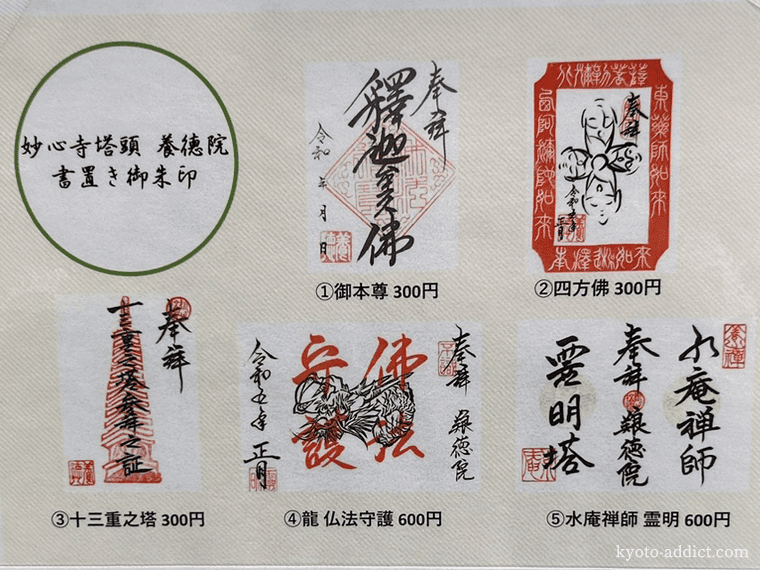 妙心寺塔頭 養徳院
書置き御朱印
奉拝
釋迦牟尼佛
令和 年 月 日
①御本尊 300円
東薬師如来
奉拝
令和五年
正月
②四方佛 300円
奉拝
十三重之塔参拝之証
③十三重之塔 300円
奉拝 養徳院
佛法
守護
令和五年 正月
④龍 仏法守護 600円
水庵禅師
奉拝 養徳院
霊明塔
⑤水庵禅師 霊明 600円
kyoto-addict.com